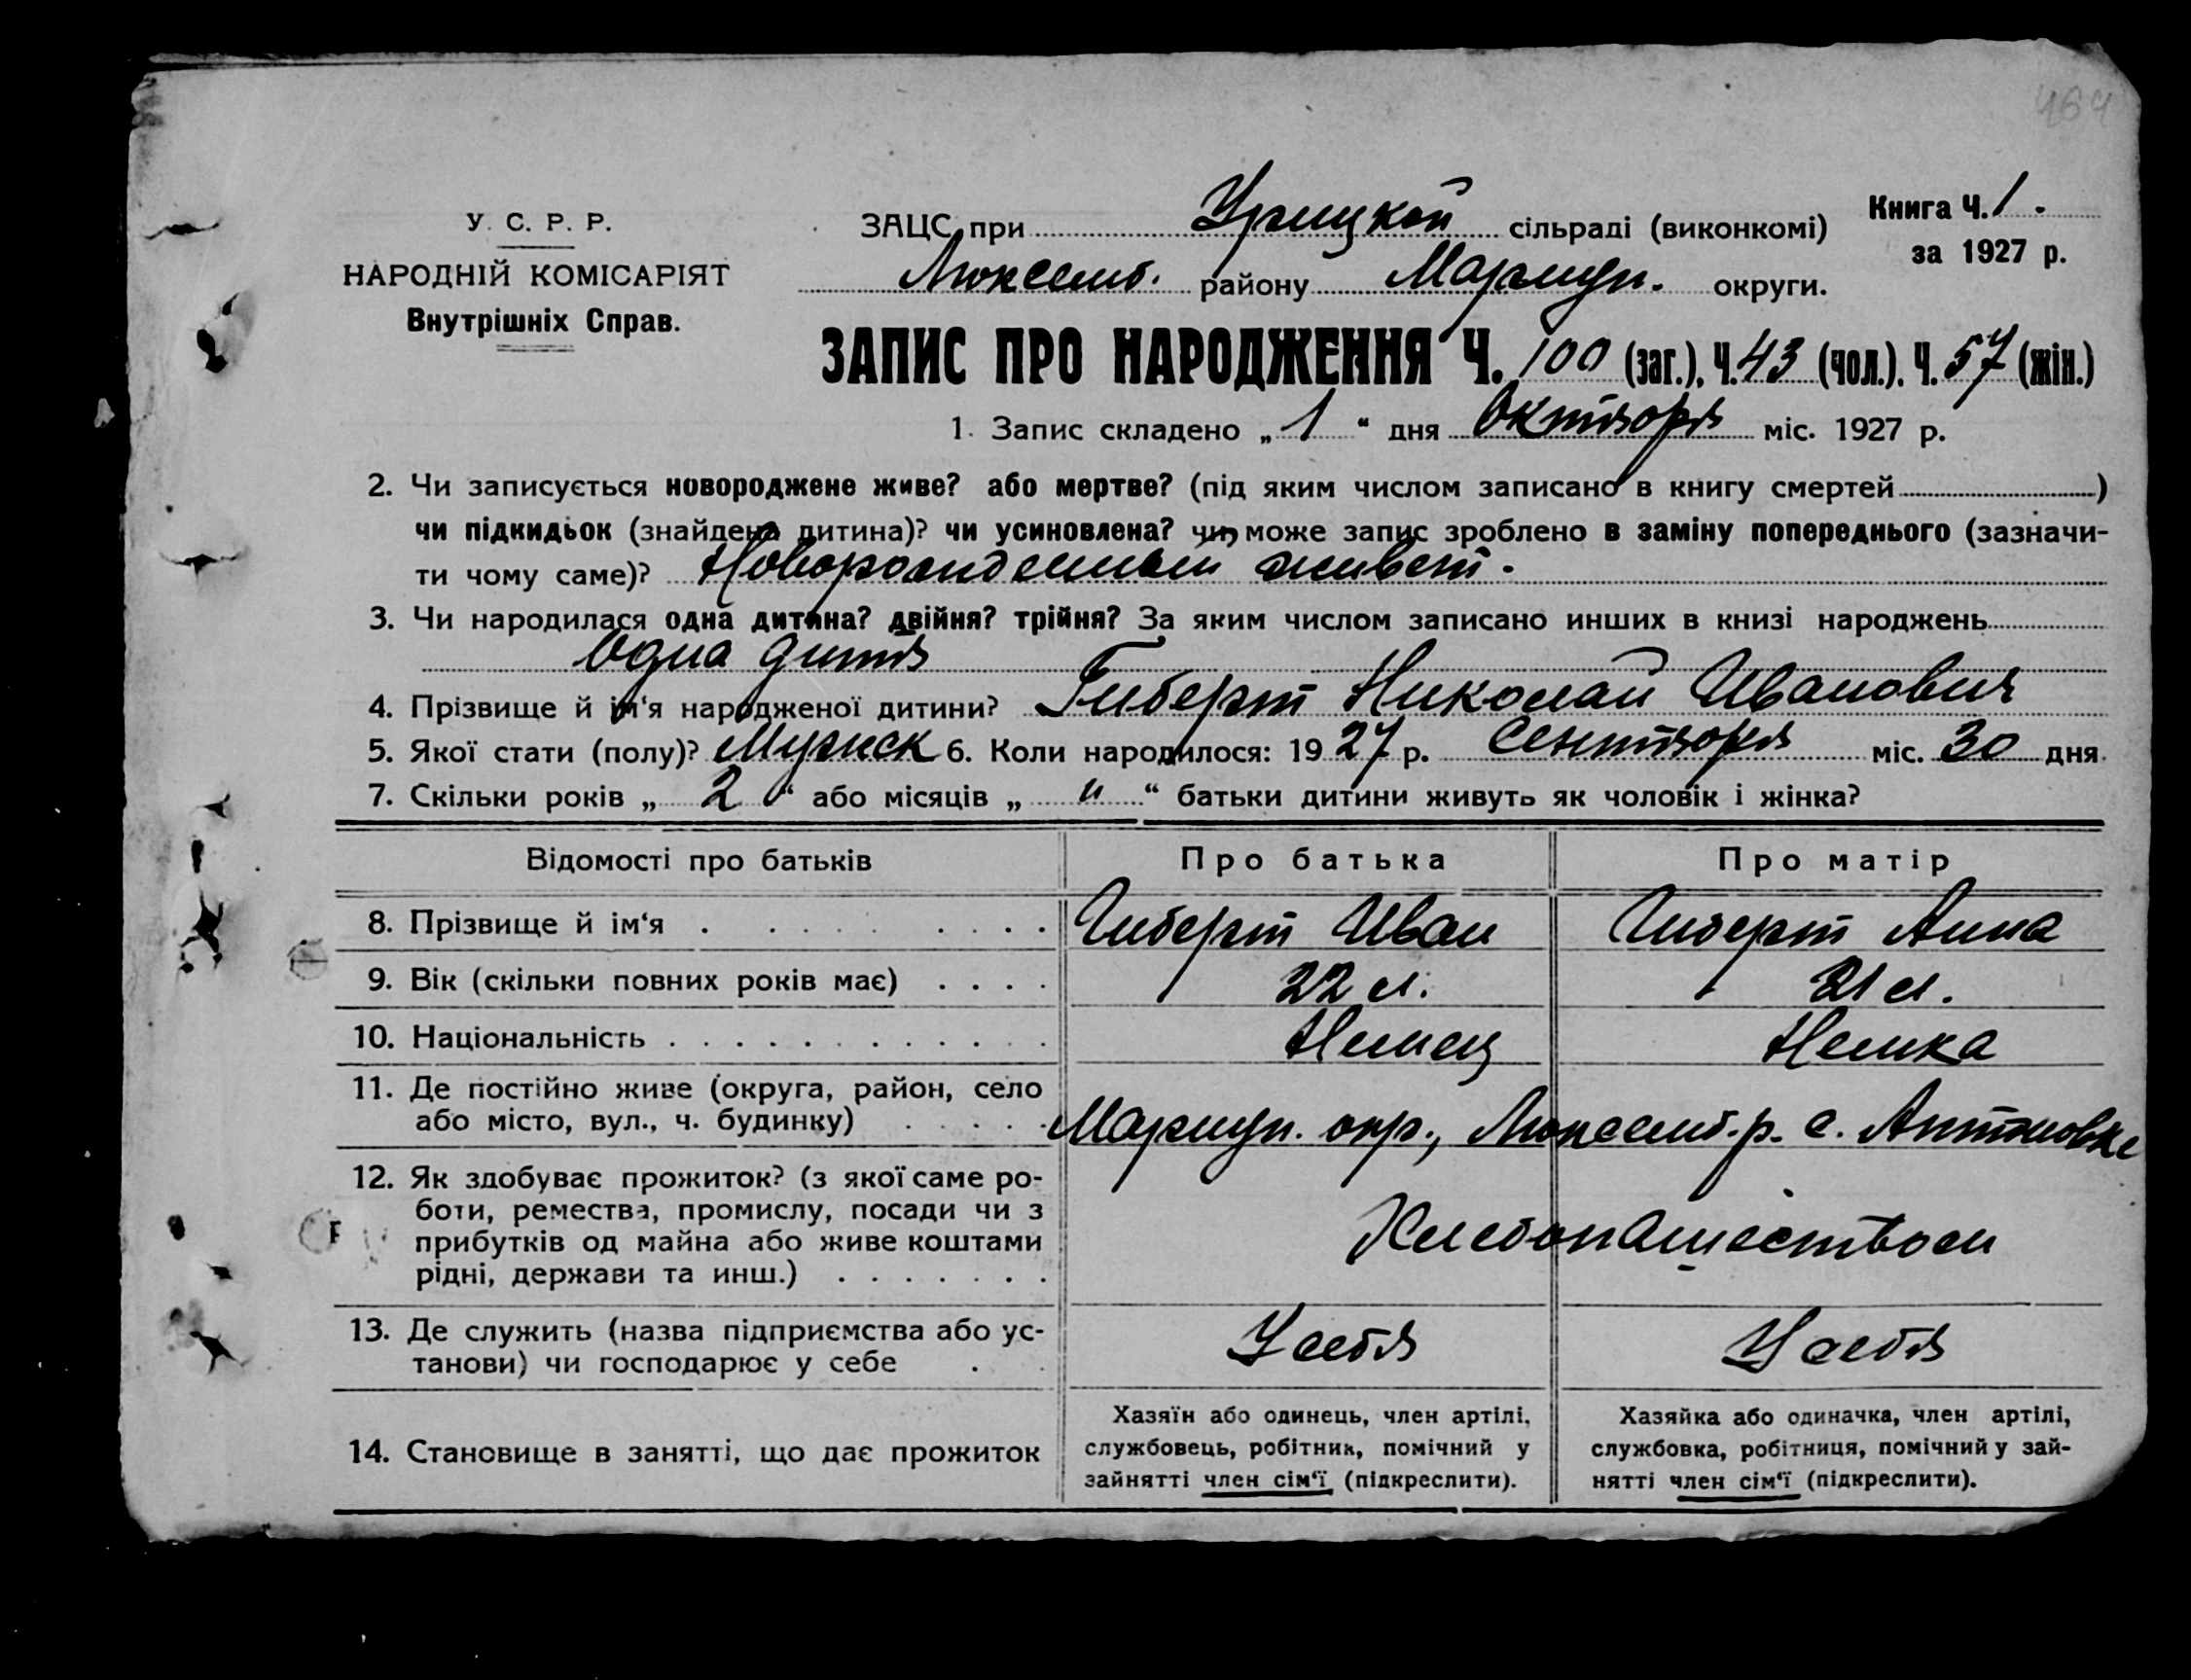 464
У. С. Р. Р.
НАРОДНІЙ КОМІСАРІЯТ
Внутрішніх Справ.
ЗАЦС при Урицкой сільраді (виконкомі)
Книга Ч. 1.
за 1927 р.
Люксемб. району Мариуп. округи.
ЗАПИС ПРО НАРОДЖЕННЯ Ч. 100 (заг.), Ч. 43 (чол.), Ч. 57 (жін.)
1. Запис складено „ 1 “ дня Октября міс. 1927 р.
2. Чи записується новороджене живе? або мертве? (під яким числом записано в книгу смертей)
чи підкидьок (знайдена дитина)? чи усиновлена? чи, може запис зроблено в заміну попереднього (зазначи-
ти чому саме)? Новорожденный живет.
3. Чи народилася одна дитина? двійня? трійня? За яким числом записано инших в книзі народжень
Одна дитя
4. Прізвище й ім‘я народженої дитини? Гиберт Николай Иванович
5. Якої стати (полу)? Мужск 6. Коли народилося: 19 27 р. Сентября міс. 30 дня
7. Скільки років „ 2 “ або місяців „ " “ батьки дитини живуть як чоловік і жінка?
Відомості про батьків Про батька Про матір
8. Прізвище й ім‘я Гиберт Иван Гиберт Анна
9. Вік (скільки повних років має) 22 л. 21 л.
10. Національність Немец Немка
11. Де постійно живе (округа, район, село
або місто, вул., ч. будинку) Мариуп. окр., Люксемб. р. с.
12. Як здобуває прожиток? (з якої саме ро-
боти, ремества, промислу, посади чи з
прибутків од майна або живе коштами
рідні, держави та инш.) Хлебопашеством
13. Де служить (назва підприємства або ус-
танови) чи господарює у себе У себя У себя
14. Становище в занятті, що дає прожиток
Хазяїн або одинець, член артілі,
службовець, робітник, помічний у
зайнятті член сім‘ї (підкреслити).
Хазяйка або одиначка, член артілі,
службовка, робітниця, помічний у зай-
нятті член сім‘ї (підкреслити).